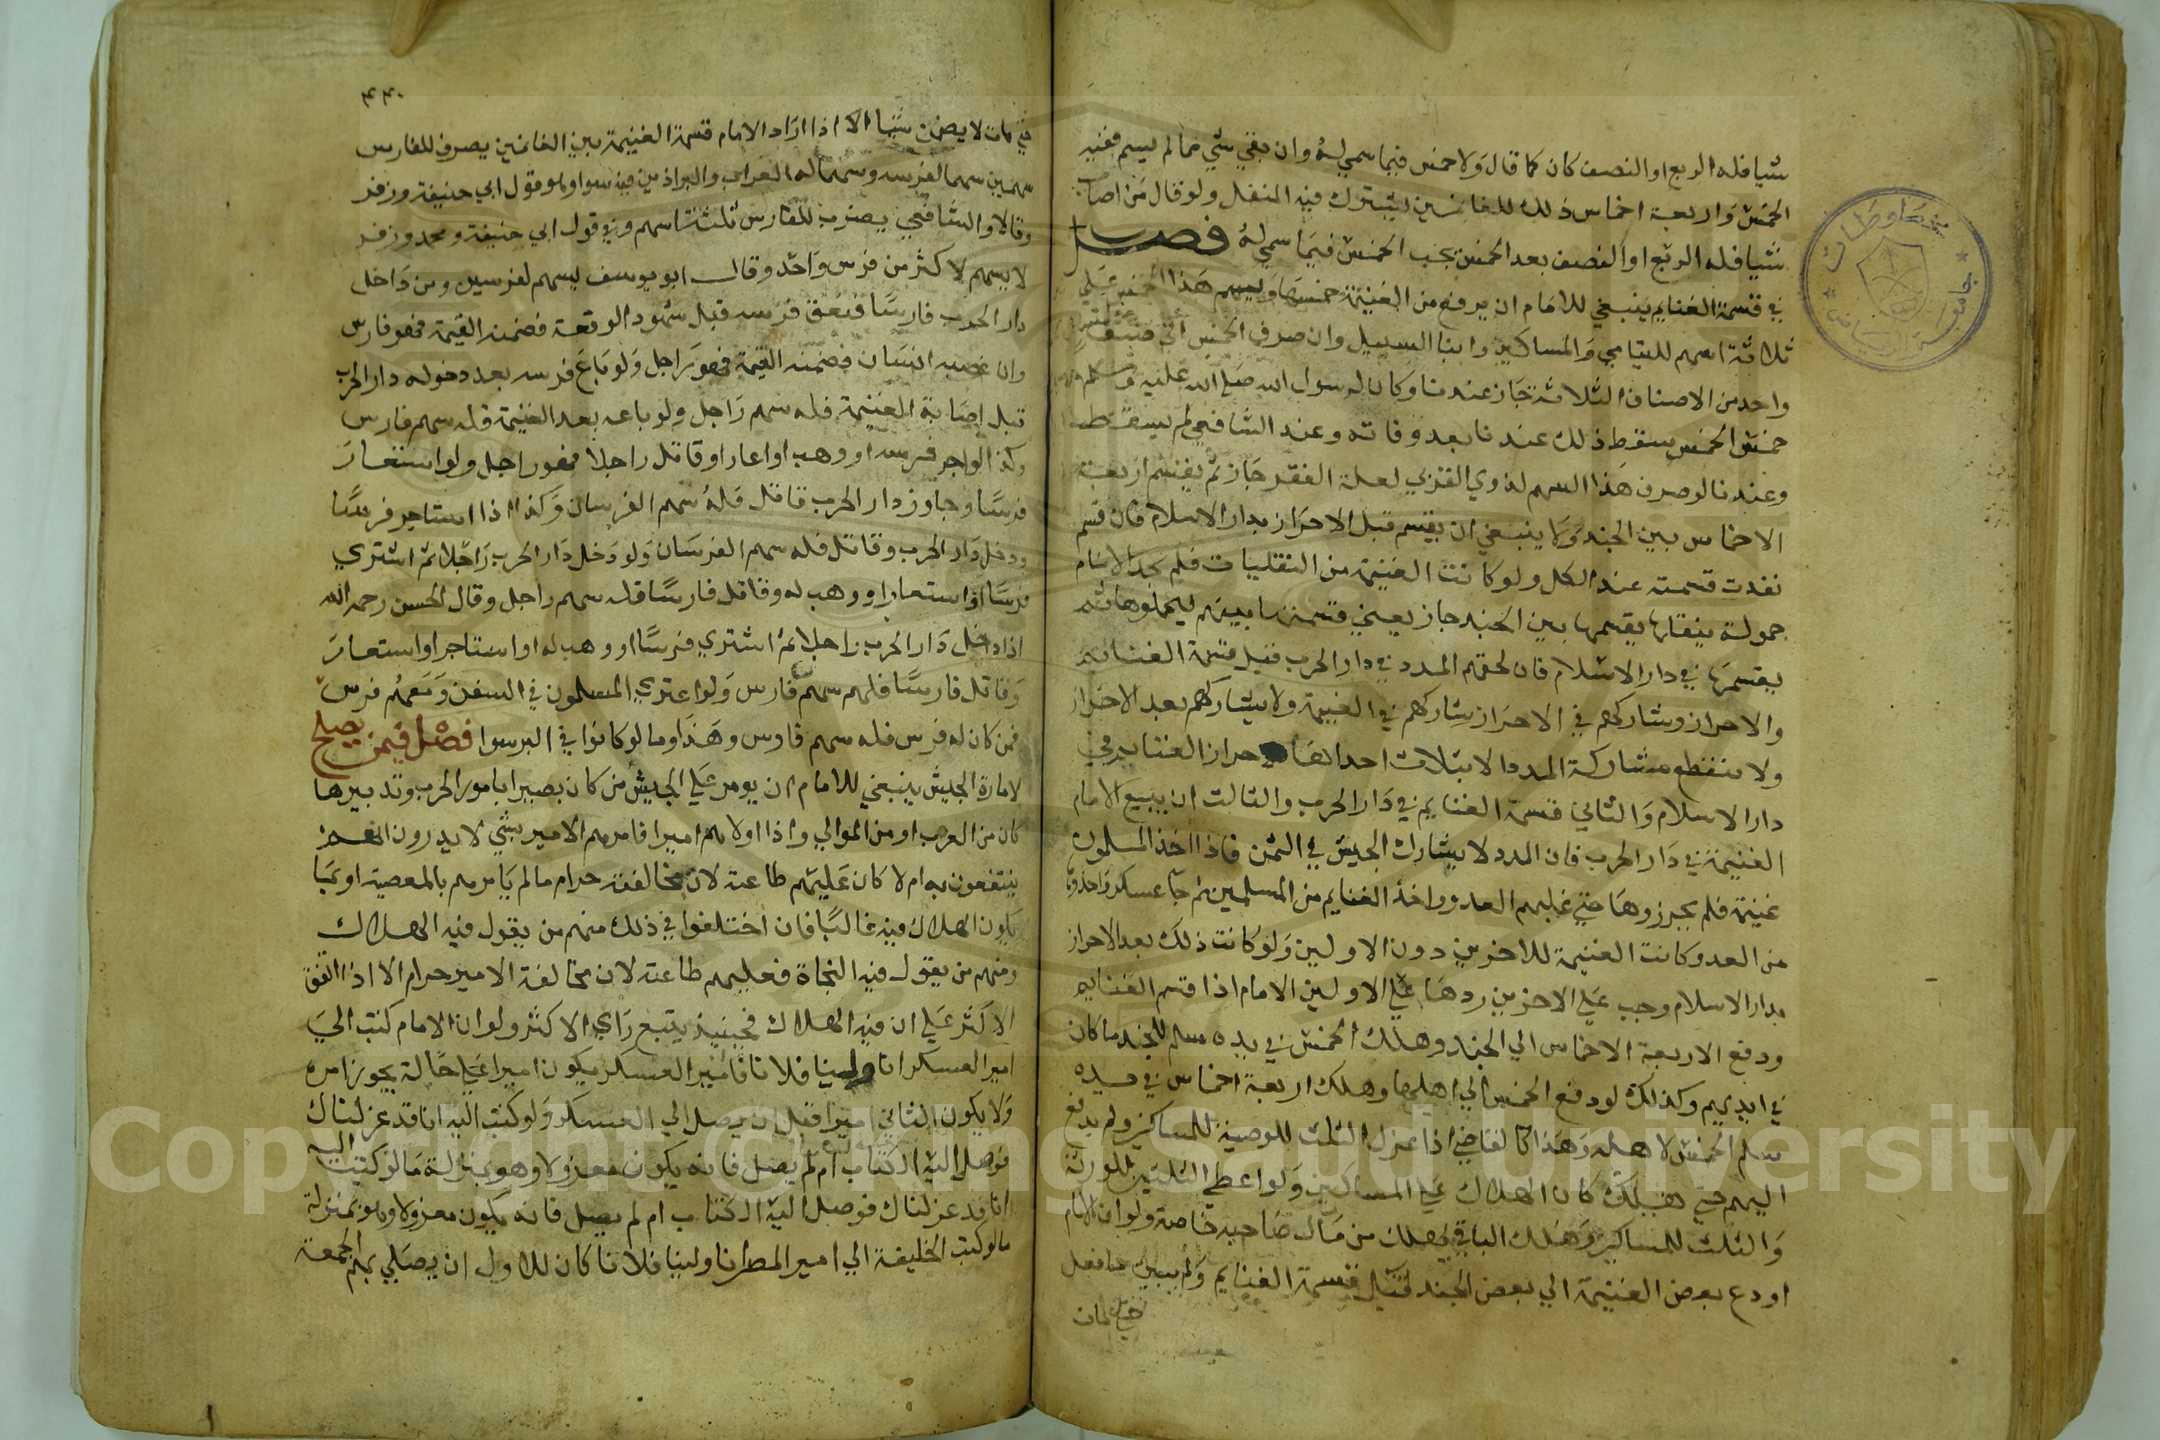 شيا فله الربع او النصف كان كما قال ولا خمس فيما سمي له وان بقي شي مما لم يسم ففيه
الخمس واربعة اخماس ذلك للغانمين يشترك فيه المنفل ولو قال من اصاب
شيا فله الربع او النصف بعد الخمس يجب الخمس فيما سمي له فصل
في قسمة الغنايم ينبغي للامام ان يرفع من الغنيمة خمسها ويسهم هذا الخمس علي
ثلاثة اسهم لليتامي والمساكين وابنا السبيل وان صرف الخمس الي صنف
واحد من الاصناف الثلاثة جاز عندنا وكان لرسول الله صلي الله عليه وسلم
خمس الخمس سقط ذلك عندنا بعد وفاته وعند الشافعي لم يسقط
وعندنا لو صرف هذا السهم لذوي القربي لعلة الفقر جاز ثم يقسم اربعة
الاخماس بين الجند ولا ينبغي ان يقسم قبل الاحراز بدار الاسلام فان قسم
نفذت قسمته عند الكل ولو كانت الغنيمة من النقليات فلم يجد الامام
حمولة ينقلها يقسمها بين الجند جاز يعني قسمتها بينهم ليحملوها ثم
يقسمها في دار الاسلام فان لحقهم المدد في دار الحرب قبل قسمة الغنايم
والاحراز وشاركهم في الاحراز شاركهم في الغنيمة ولا يشاركهم بعد الاحراز
ولا ينقطع مشاركة المدد الا بثلاث احدها احراز الغنايم في
دار الاسلام والثاني قسمة الغنايم في دار الحرب والثالث ان يبيع الامام
الغنيمة في دار الحرب فان المدد لا يشارك الجيش في الثمن فاذا اخذ المسلمون
غنيمة فلم يحرزوها حتي غلبهم العدو واخذ الغنايم من المسلمين ثم جا عسكر واخذوا
من العدو كانت الغنيمة للاخرين دون الاولين ولو كانت ذلك بعد الاحراز
بدار الاسلام وجب علي الاخرين ردها علي الاولين الامام اذا قسم الغنايم
ودفع الاربعة الاخماس الي الجند وهلك الخمس في يده سلم للجند ما كان
في ايديهم وكذلك لو دفع الخمس الي اهلها وهلك اربعة اخماس في يده
سلم الخمس لاهله وهذا كالقاضي اذا عزل الثلث للوصية للمساكين ولم يدفع
اليهم حتي هلك كان الهلاك علي المساكين ولو اعطي الثلثين للورثة
والثلث للمساكين وهلك الباقي يهلك من مال صاحبه خاصة ولو ان الامام
اودع بعض الغنيمة الي بعض الجند قبل قسمة الغنايم ولم يبين ما فعل
حتي مات
٤٤٠
حتي مات لا يضمن شيا الا اذا اراد الامام قسمة الغنيمة بين الغانمين يصرف للفارس
سهمين سهما لفرسه وسهما له العراب والبراذين فيه سوا وهو قول ابي حنيفة وزفر
وقالا والشافعي يضرب للفارس ثلثة اسهم وفي قول ابي حنيفة ومحمد وزفر
لا يسهم لاكثر من فرس واحد وقال ابو يوسف يسهم لفرسين ومن داخل
دار الحرب فارسا فنفق فرسه قبل شهود الوقعة فضمنه القيمة فهو فارس
وان غصبه انسان فضمنه القيمة فهو راجل ولو باع فرسه بعد دخوله دار الحرب
قبل اصابة الغنيمة فله سهم راجل ولو باعه بعد الغنيمة فله سهم فارس
وكذا لو اجر فرسه او وهب او اعار او قاتل راجلا فهو راجل ولو استعار
فرسا وجاوز دار الحرب قاتل فله سهم الفرسان وكذا اذا استاجر فرسا
ودخل دار الحرب وقاتل فله سهم الفرسان ولو دخل دار الحرب راجلا ثم اشتري
فرسا او استعار او وهب له وقاتل فارسا فله سهم راجل وقال الحسن رحمه الله
اذا دخل دار الحرب راجلا ثم اشتري فرسا او وهب له او استاجر او استعار
وقاتل فارسا فلهم سهم فارس ولو اعتري المسلمون في السفن ومعهم فرس
فمن كان له فرس فله سهم فارس وهذا وما لو كانوا في البر سوا فصل فيمن يصلح
لامارة الجيش ينبغي للامام ان يومر علي الجيش من كان بصيرا بامور الحرب وتدبيرها
كان من العرب او من الموالي واذا اولاهم اميرا فامرهم الامير بشي لا يدرون انهم
ينتفعون به ام لا كان عليهم طاعته لان مخالفته حرام ما لم يامرهم بالمعصية او بما
يكون الهلاك فيه غالبا فان اختلفوا في ذلك منهم من يقول فيه الهلاك
ومنهم من يقول فيه النجاة فعليهم طاعته لان مخالفة الامير حرام الا اذا اتفق
الاكثر علي ان فيه الهلاك فحينيذ يتبع راي الاكثر ولو ان الامام كتب الي
امير العسكر انا ولينا فلانا فامير العسكر يكون اميرا علي حالة يجوز امره
ولا يكون الثاني اميرا قبل ان يصل الي العسكر ولو كتب اليه انا قد عزلناك
فوصل اليه الكتاب ام لم يصل فانه يكون معزولا وهو بمنزلة ما لو كتبت اليه
انا قد عزلناك فوصل اليه الكتاب ام لم يصل فانه يكون معزولا وهو بمنزلة
ما لو كتب الخليفة الي امير المصر انا ولينا فلانا كان للاول ان يصلي بهم الجمعة
Copyright © King Saud University